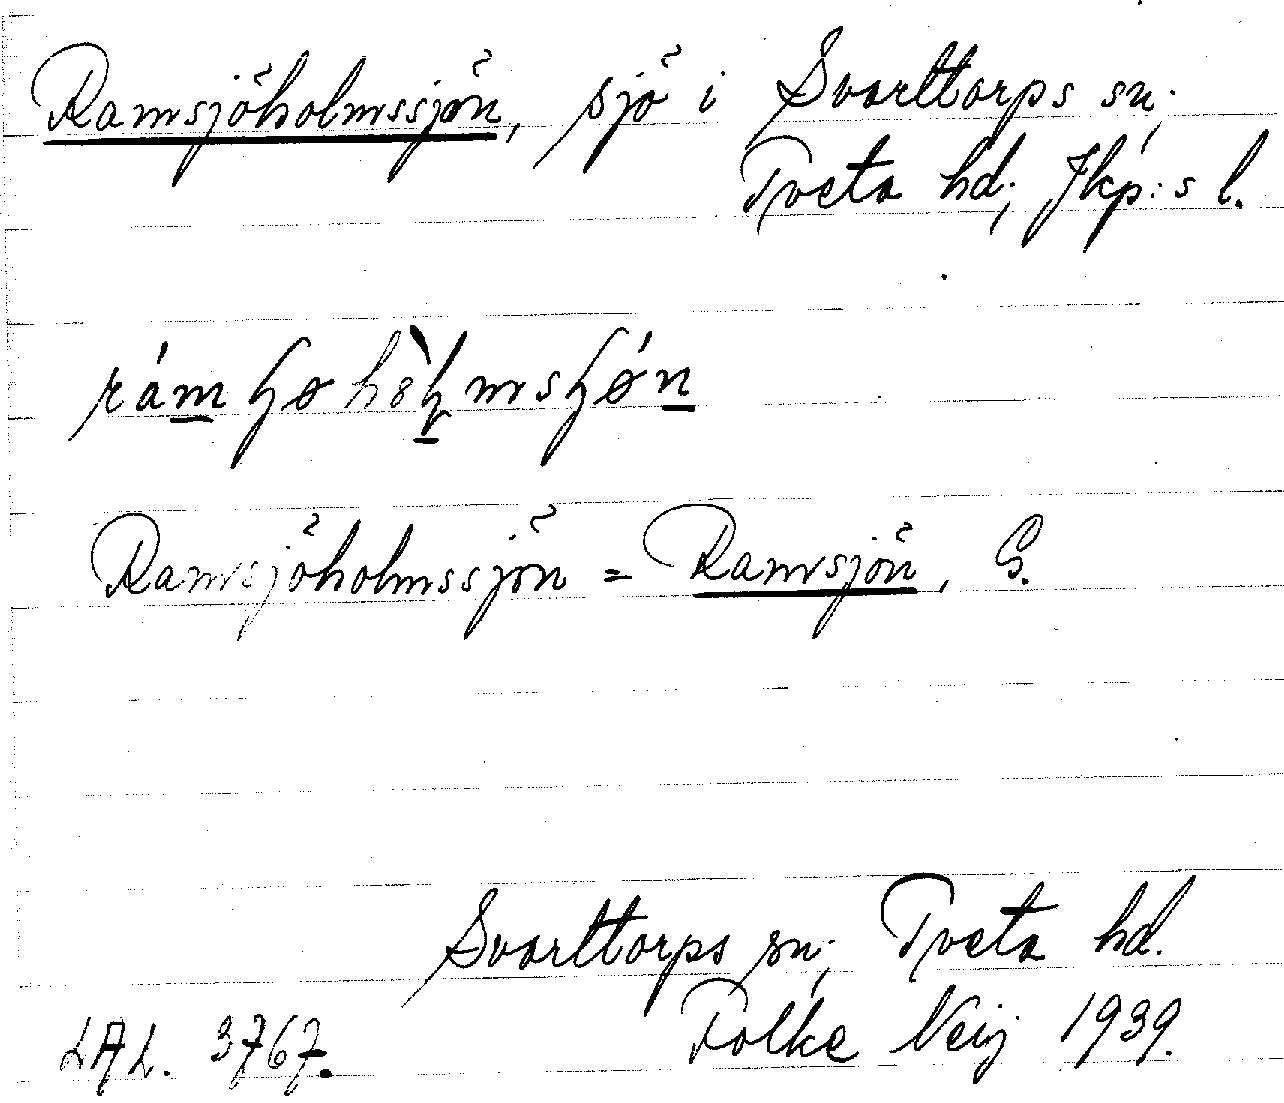 Ramsjöholmssjön, sjö i Svarttorps sn.,
Tveta hd., Jkp:s l.
Ramsjöholmssjön = Ramsjön, G.
Svarttorps sn., Tveta hd.
LAL. 3767. Folke Neij 1939.